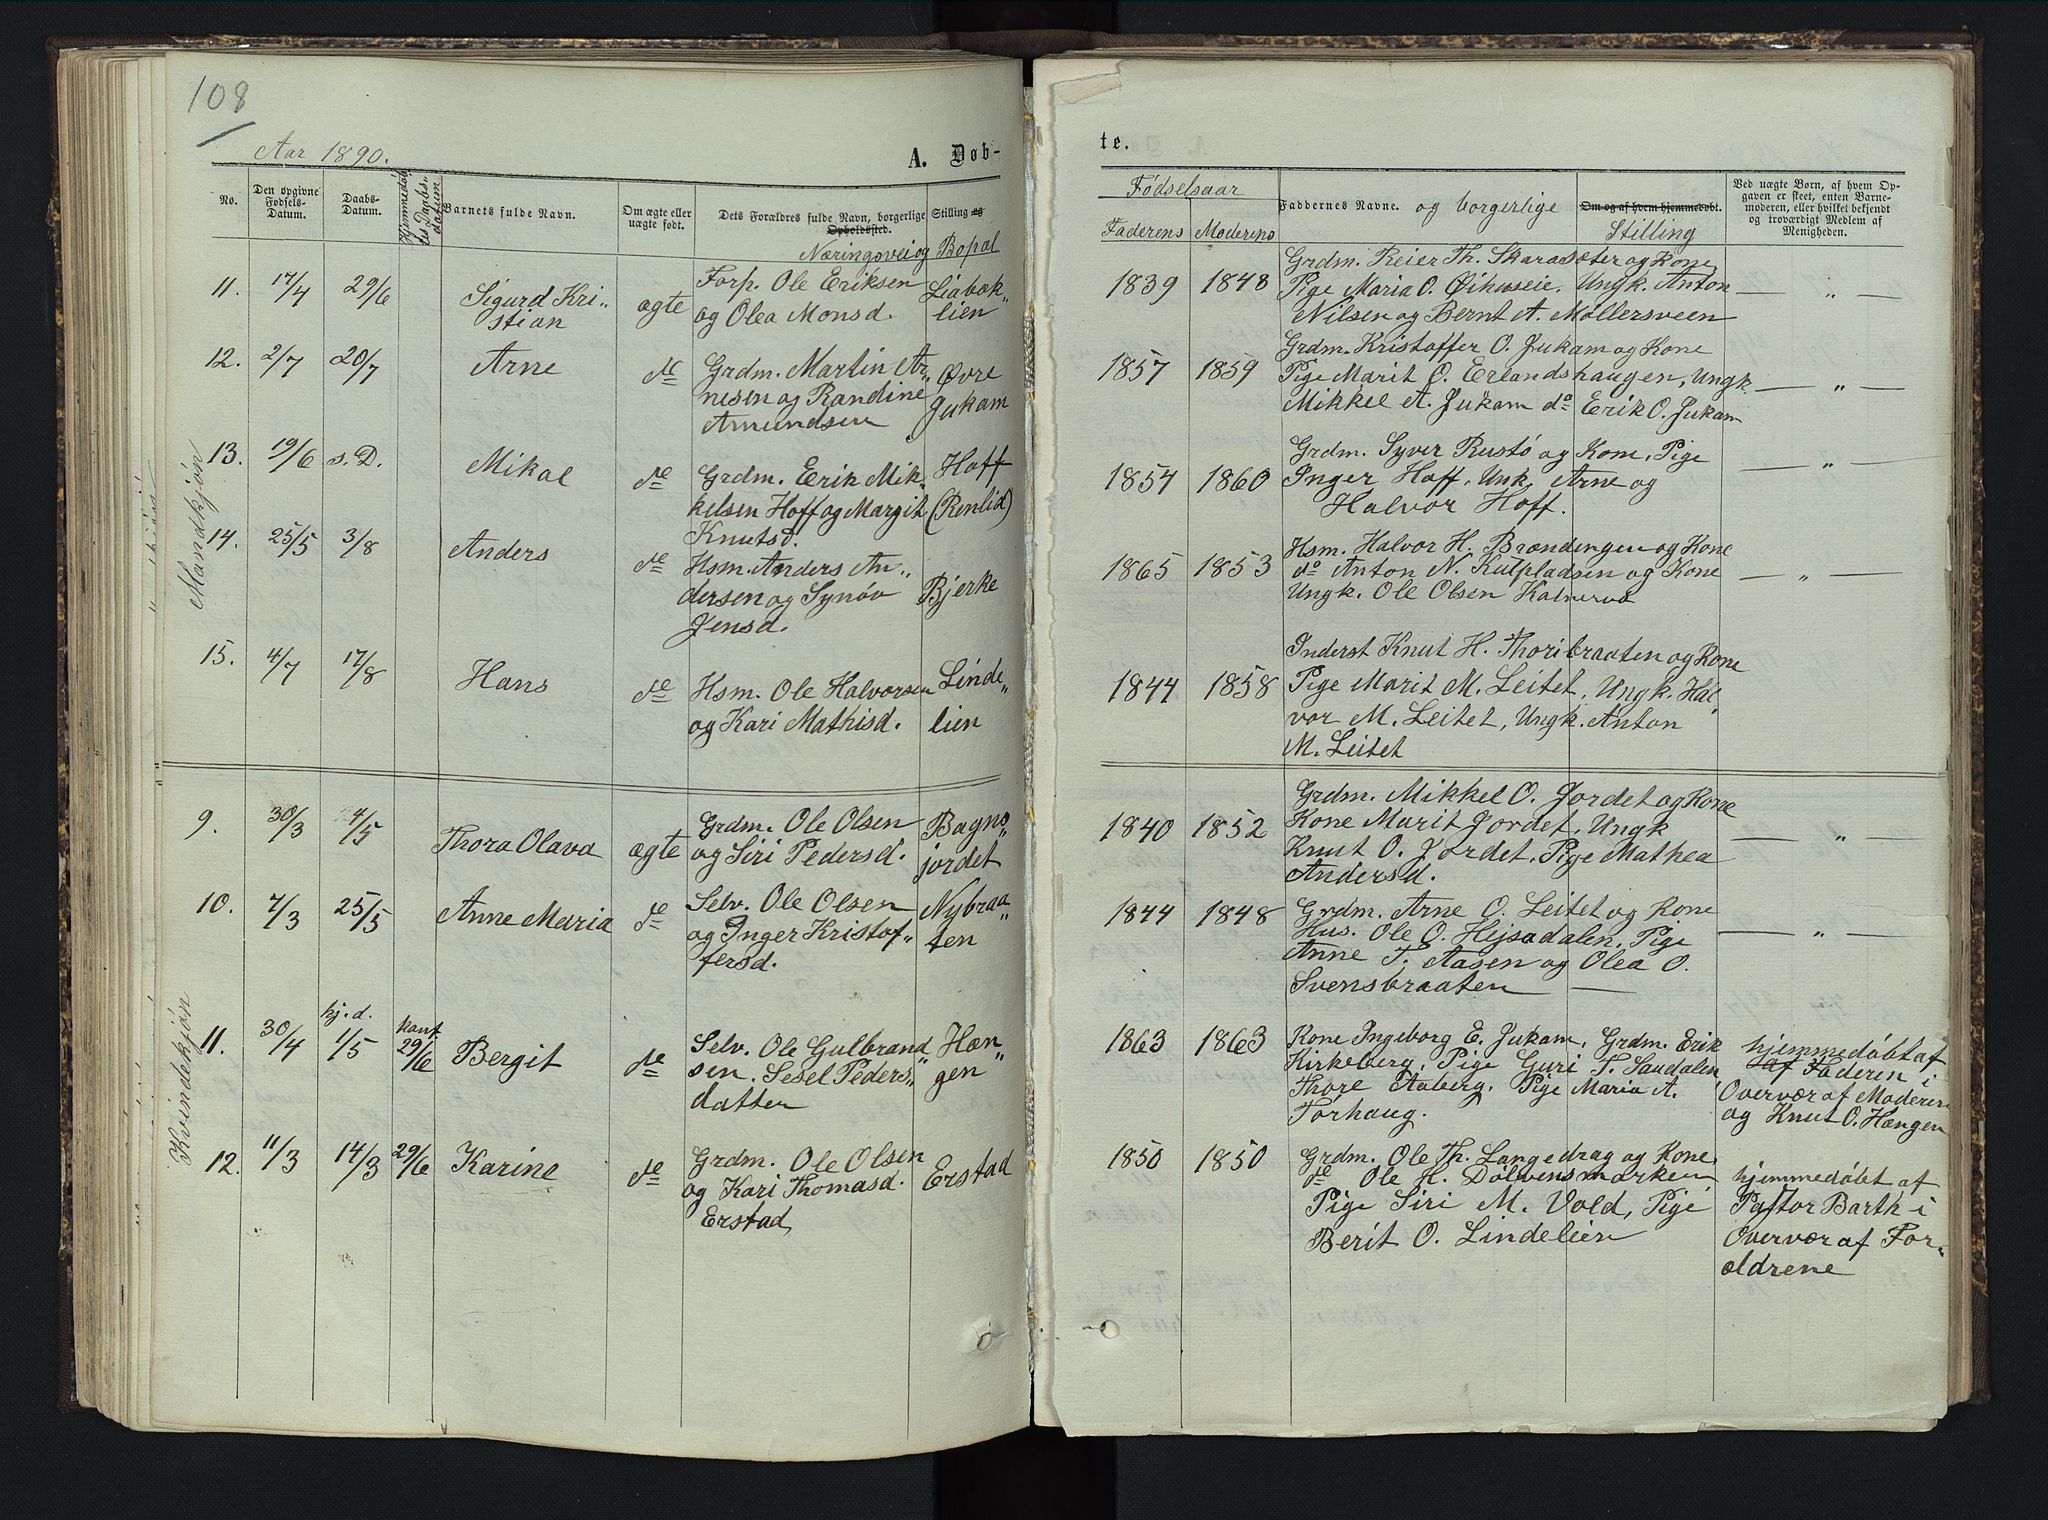 108
Aar 1890.
A. Døb-
No.
Den opgivne Fødsels-Datum.
Daabs-Datum.
Barnets fulde Navn.
Om ægte eller uægte født.
Dets Forældres fulde Navn, borgerlige
Opholdssted.
Næringsvei og
Stilling og
Bopæl
Mandkjøn
11.
17/4
29/6
Sigurd Kri-
stian
ægte
Forp. Ole Eriksen
og Olea Monsd.
Liabøk-
lien
12.
2/7
20/7
Arne
de
Grdm. Martin Ar-
nesen og Randine
Amundsen
Øvre
Jukam
13.
19/6
s. D.
Mikal
de
Grdm. Erik Mik-
kelsen Hoff og Margit
Knutsd.
Hoff
(Renlid)
14.
25/5
3/8
Anders
de
Hsm. Anders An-
dersen og Synøv
Jensd.
Bjerke
15.
4/7
17/8
Hans
de
Hsm. Ole Halvorsen
og Kari Mathisd.
Linde-
lien
Kvindekjøn
9.
30/3
4/5
Thora Olava
ægte
Grdm. Ole Olsen
og Siri Pedersd.
Bagns-
jordet
10.
7/3
25/5
Anne Maria
de
Selv. Ole Olsen
og Inger Kristof-
fersd.
Nybraa-
ten
11.
30/4
hj. d.
1/5
29/6
Bergit
de
Selv. Ole Gulbrand-
sen. Sesel Peders-
datter
Hæn-
gen
12.
11/3
14/3
29/6
Karine
de
Grdm. Ole Olsen
og Kari Thomasd.
Erstad,
Erstad
te.
Fødselsaar
Faderens
Moderens
Faddernes Navne.
og borgerlige
Om og af hvem hjemmedøbt.
Stilling
Ved uægte Børn, af hvem Op-
gaven er skeet, enten Barne-
moderen, eller hvilket bekjendt
og troværdigt Medlem af
Menigheden.
1839
1848
Grdm. Reier Th. Skarasæter og Kone,
Pige Maria O. Ungk. Anton
Nilsen og Bernt A. Møllersveen
— „ —
1857
1859
Grdm. Kristoffer O. Jukam og Kone
Pige Marit O. Erlandshaugen, Ungk.
Mikkel A. Jukam do Erik O. Jukam
— „ —
1854
1860
Grdm. Syver Rustø og Kone, Pige
Inger Hoff, Unk. Arne og
Halvor Hoff.
— „ —
1865
1853
Hsm. Halvor H. Brændingen og Kone
do Anton N. Kulpladsen og Kone
Ungk. Ole Olsen
— „ —
1844
1858
Inderst Knut H. Thoribraaten og Kone
Pige Marit M. Leitet, Ungk. Hal-
vor M. Leitet, Ungk. Anton
M. Leitet
1840
1852
Grdm. Mikkel O. Jordet og Kone
Kone Marit Jordet, Ungk
Knut O. Jordet, Pige Mathea
Andersd.
— „ —
1844
1848
Grdm. Arne O. Leitet og Kone
Hus. Ole O. Hejsadalen, Pige
Anne T. Aasen og Olea O.
Svensbraaten —
— „ —
1863
1863
Kone Ingeborg E. Jukam, Grdm. Erik
Kirkeberg, Pige Guri T. Saudalen,
Thore Aaberg, Pige Maria A.
Torhaug.
hjemmedøbt af
af Faderen i
Overvær af Moderen
og Knut O. Hængen
1850
1850
Grdm. Ole Th. Langedrag og Kone,
de Ole H. Dølvensmarken
Pige Siri M. Vold, Pige
Berit O. Lindelien
hjemmedøbt af
Pastor Barth i
Overvær af For-
ældrene